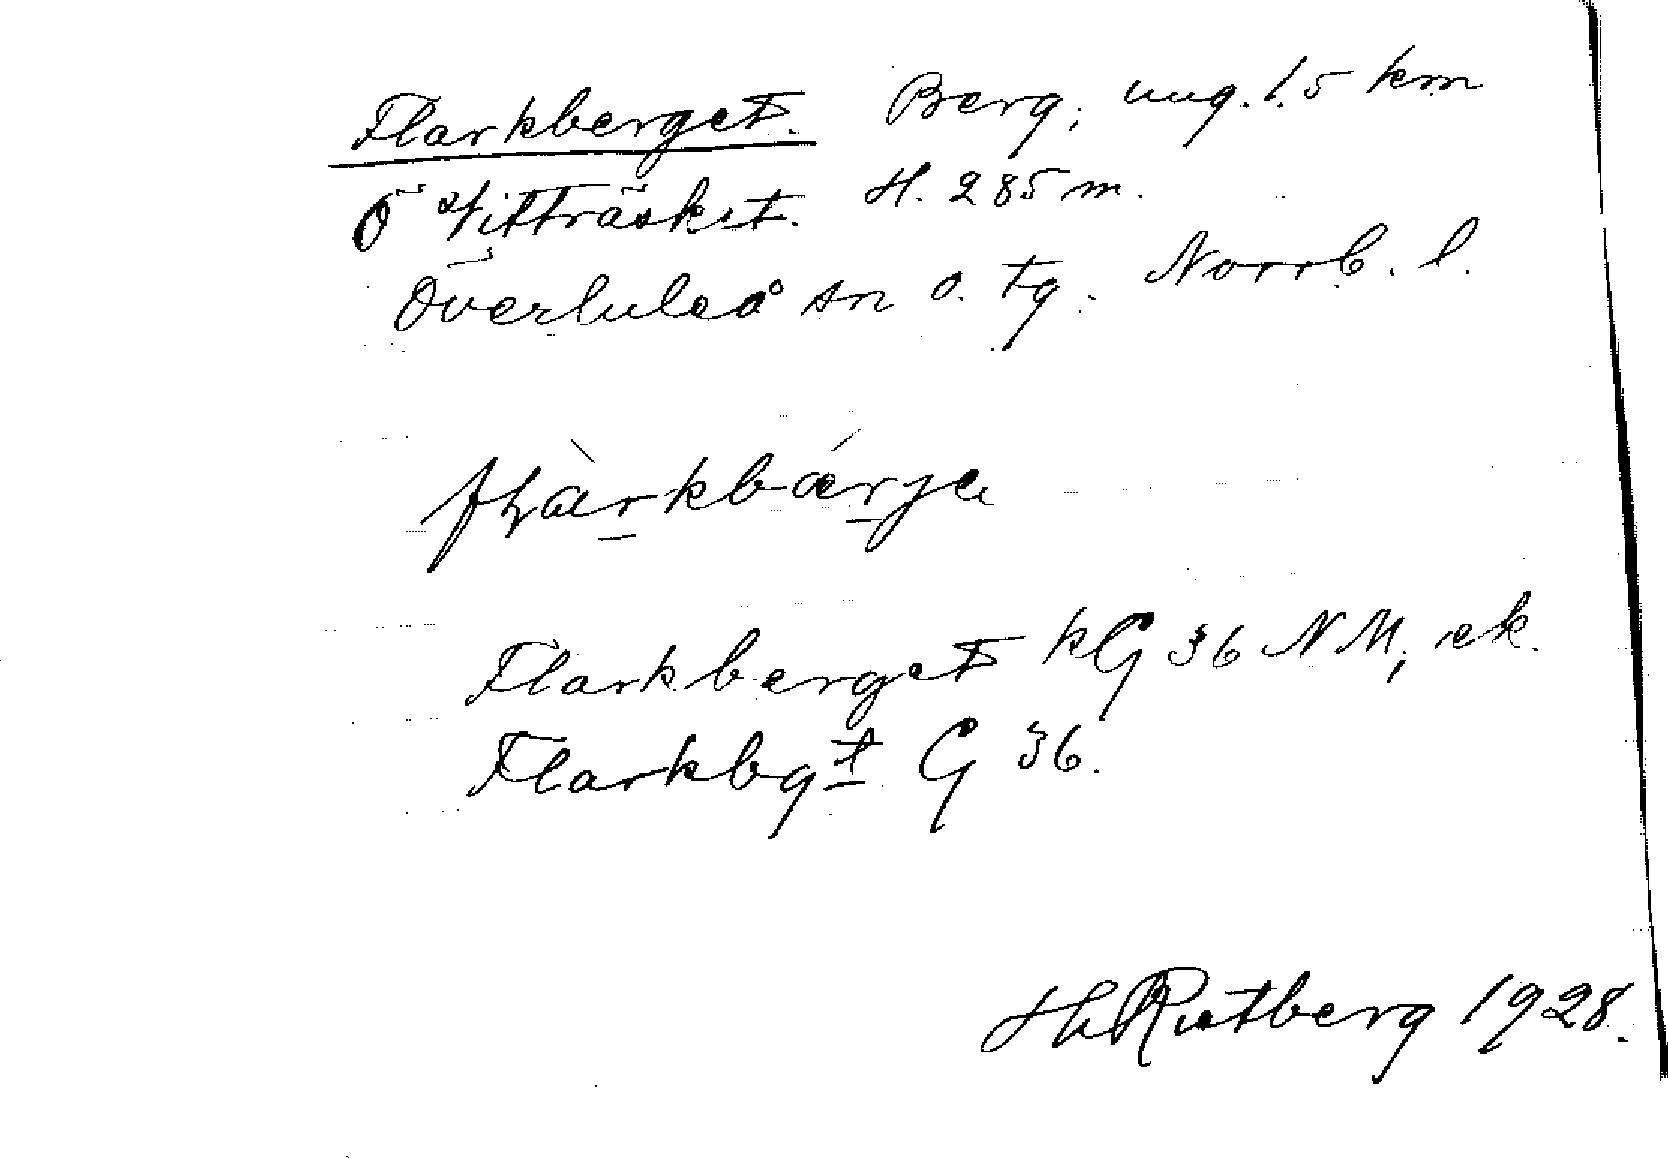 Flarkberget. Berg, ung. 1.5 km
Ö Vitträsket. H. 285 m.
Överluleå sn o. tg. Norrb. l.
fḷàrkbǽrje
Flarkberget kG 36 NM, ek.
Flarkbgt G 36.
HRutberg 1928.